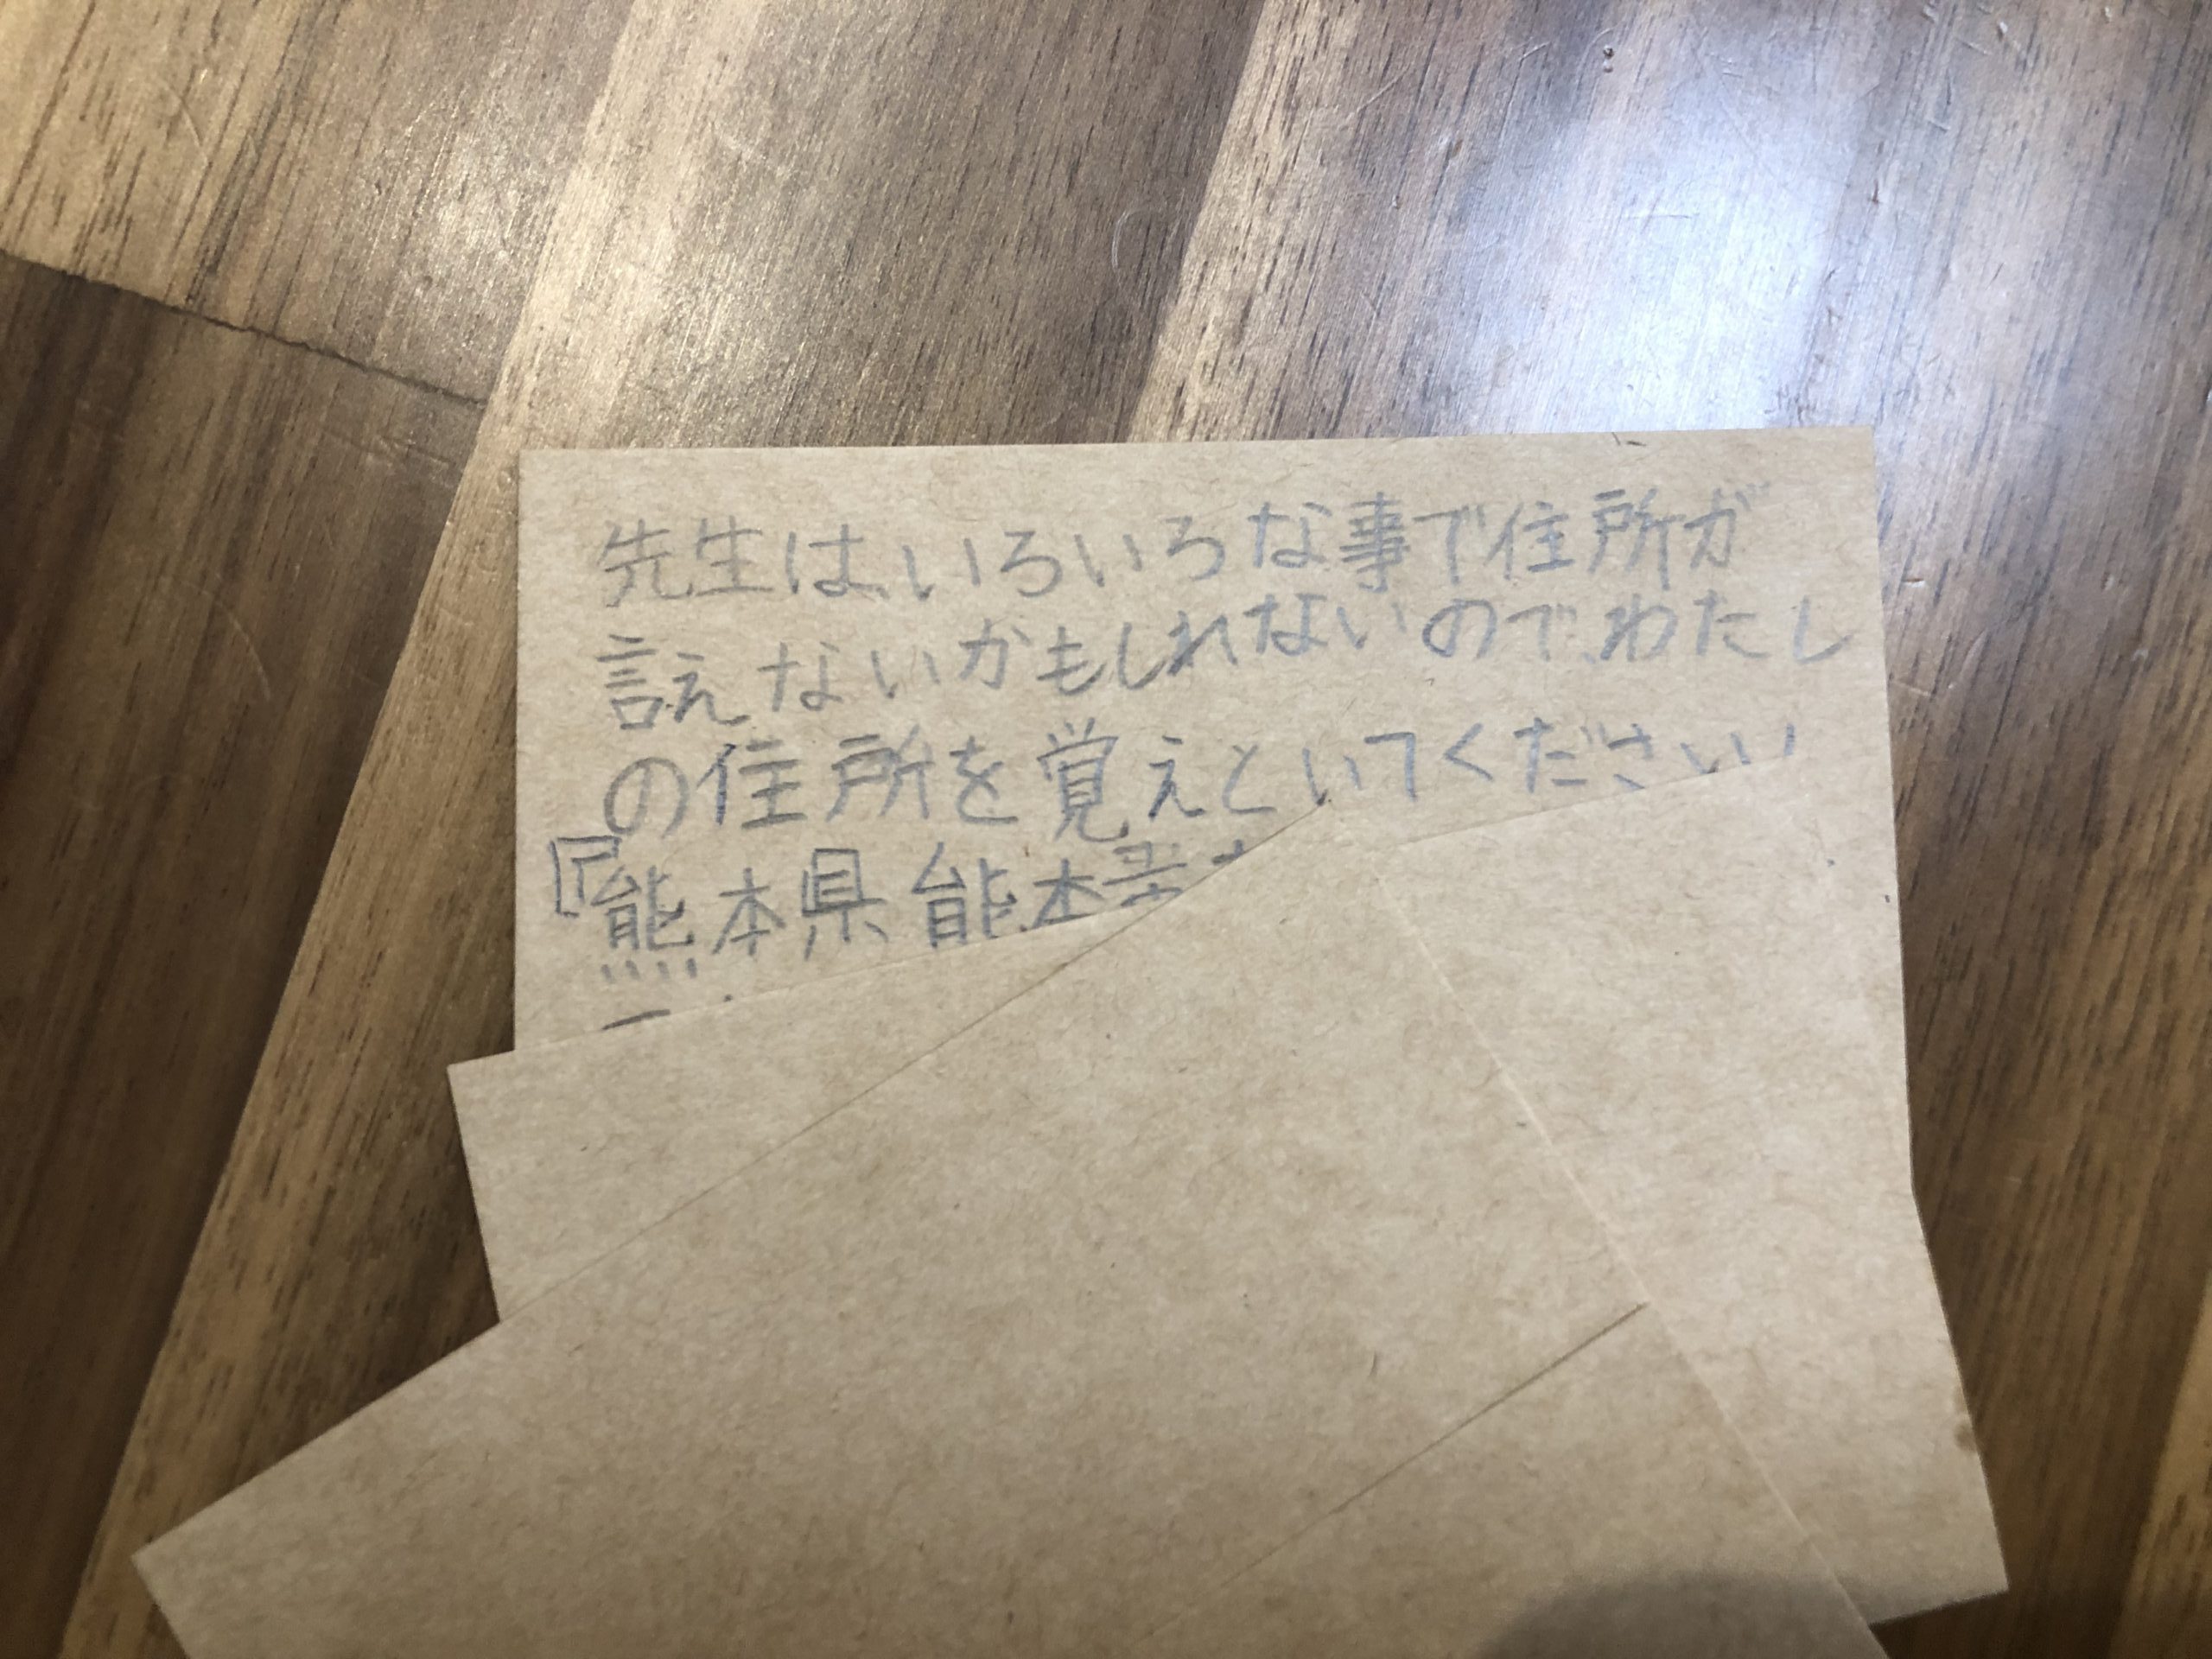 先生は、いろいろな事で住所が
言えないかもしれないので、わたし
の住所を覚えといてください
『熊本県熊本